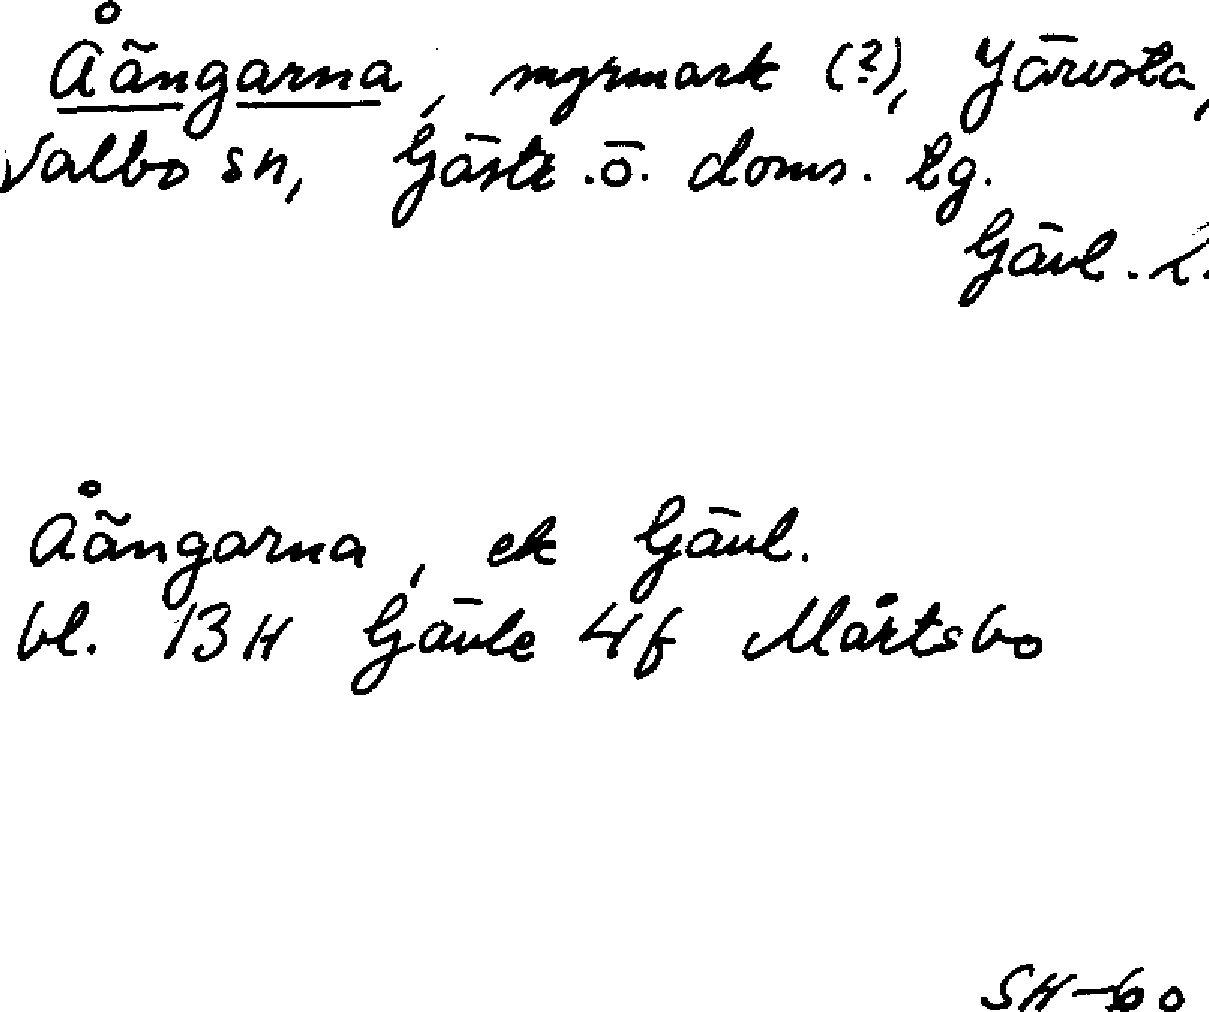 Åängarna, myrmark (?), Järvsta,
Valbo sn, Gästr. ö. doms. tg.
Gävl. l.
Åängarna, ek Gävl.
bl. 13H Gävle 4f Mårtsbo
SH-60